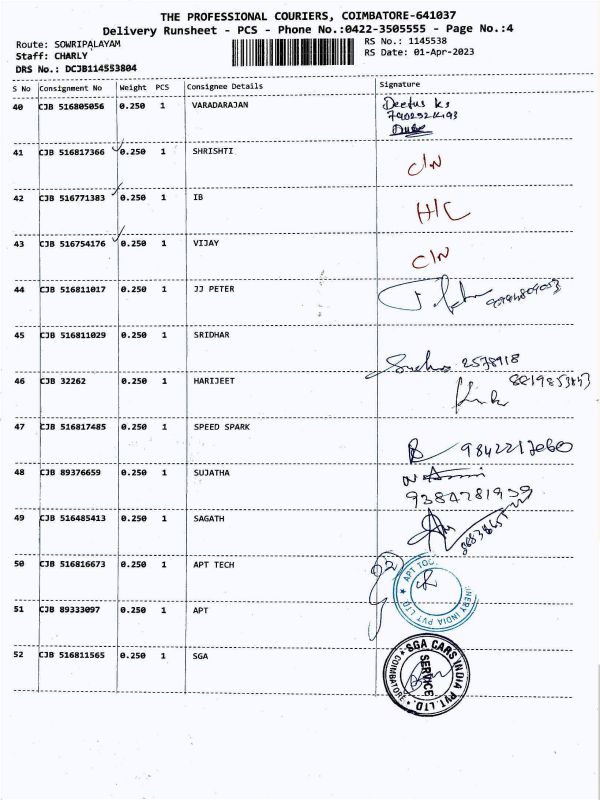 THE PROFESSIONAL COURIERS, COIMBATORE-641037
Delivery Runsheet - PCS - Phone No.:0422-3505555 - Page No.:4
Route: SOWRIPALAYAM RS No.: 1145538
Staff: CHARLY RS Date: 01-Apr-2023
DRS No.: DCJB114553804
S No Consignment No Weight PCS Consignee Details Signature
40 CJB 516805056 0.250 1 VARADARAJAN
41 CJB 516817366 0.250 1 SHRISHTI C/N
42 CJB 516771383 0.250 1 IB H/C
43 CJB 516754176 0.250 1 VIJAY C/N
44 CJB 516811017 0.250 1 JJ PETER
45 CJB 516811029 0.250 1 SRIDHAR
2578918
46 CJB 32262 0.250 1 HARIJEET
47 CJB 516817485 0.250 1 SPEED SPARK
48 CJB 89376659 0.250 1 SUJATHA
49 CJB 516485413 0.250 1 SAGATH
50 CJB 516816673 0.250 1 APT TECH
51 CJB 89333097 0.250 1 APT
52 CJB 516811565 0.250 1 SGA
SGA CARS INDIA PVT.LTD.
SERVICE
COIMBATORE